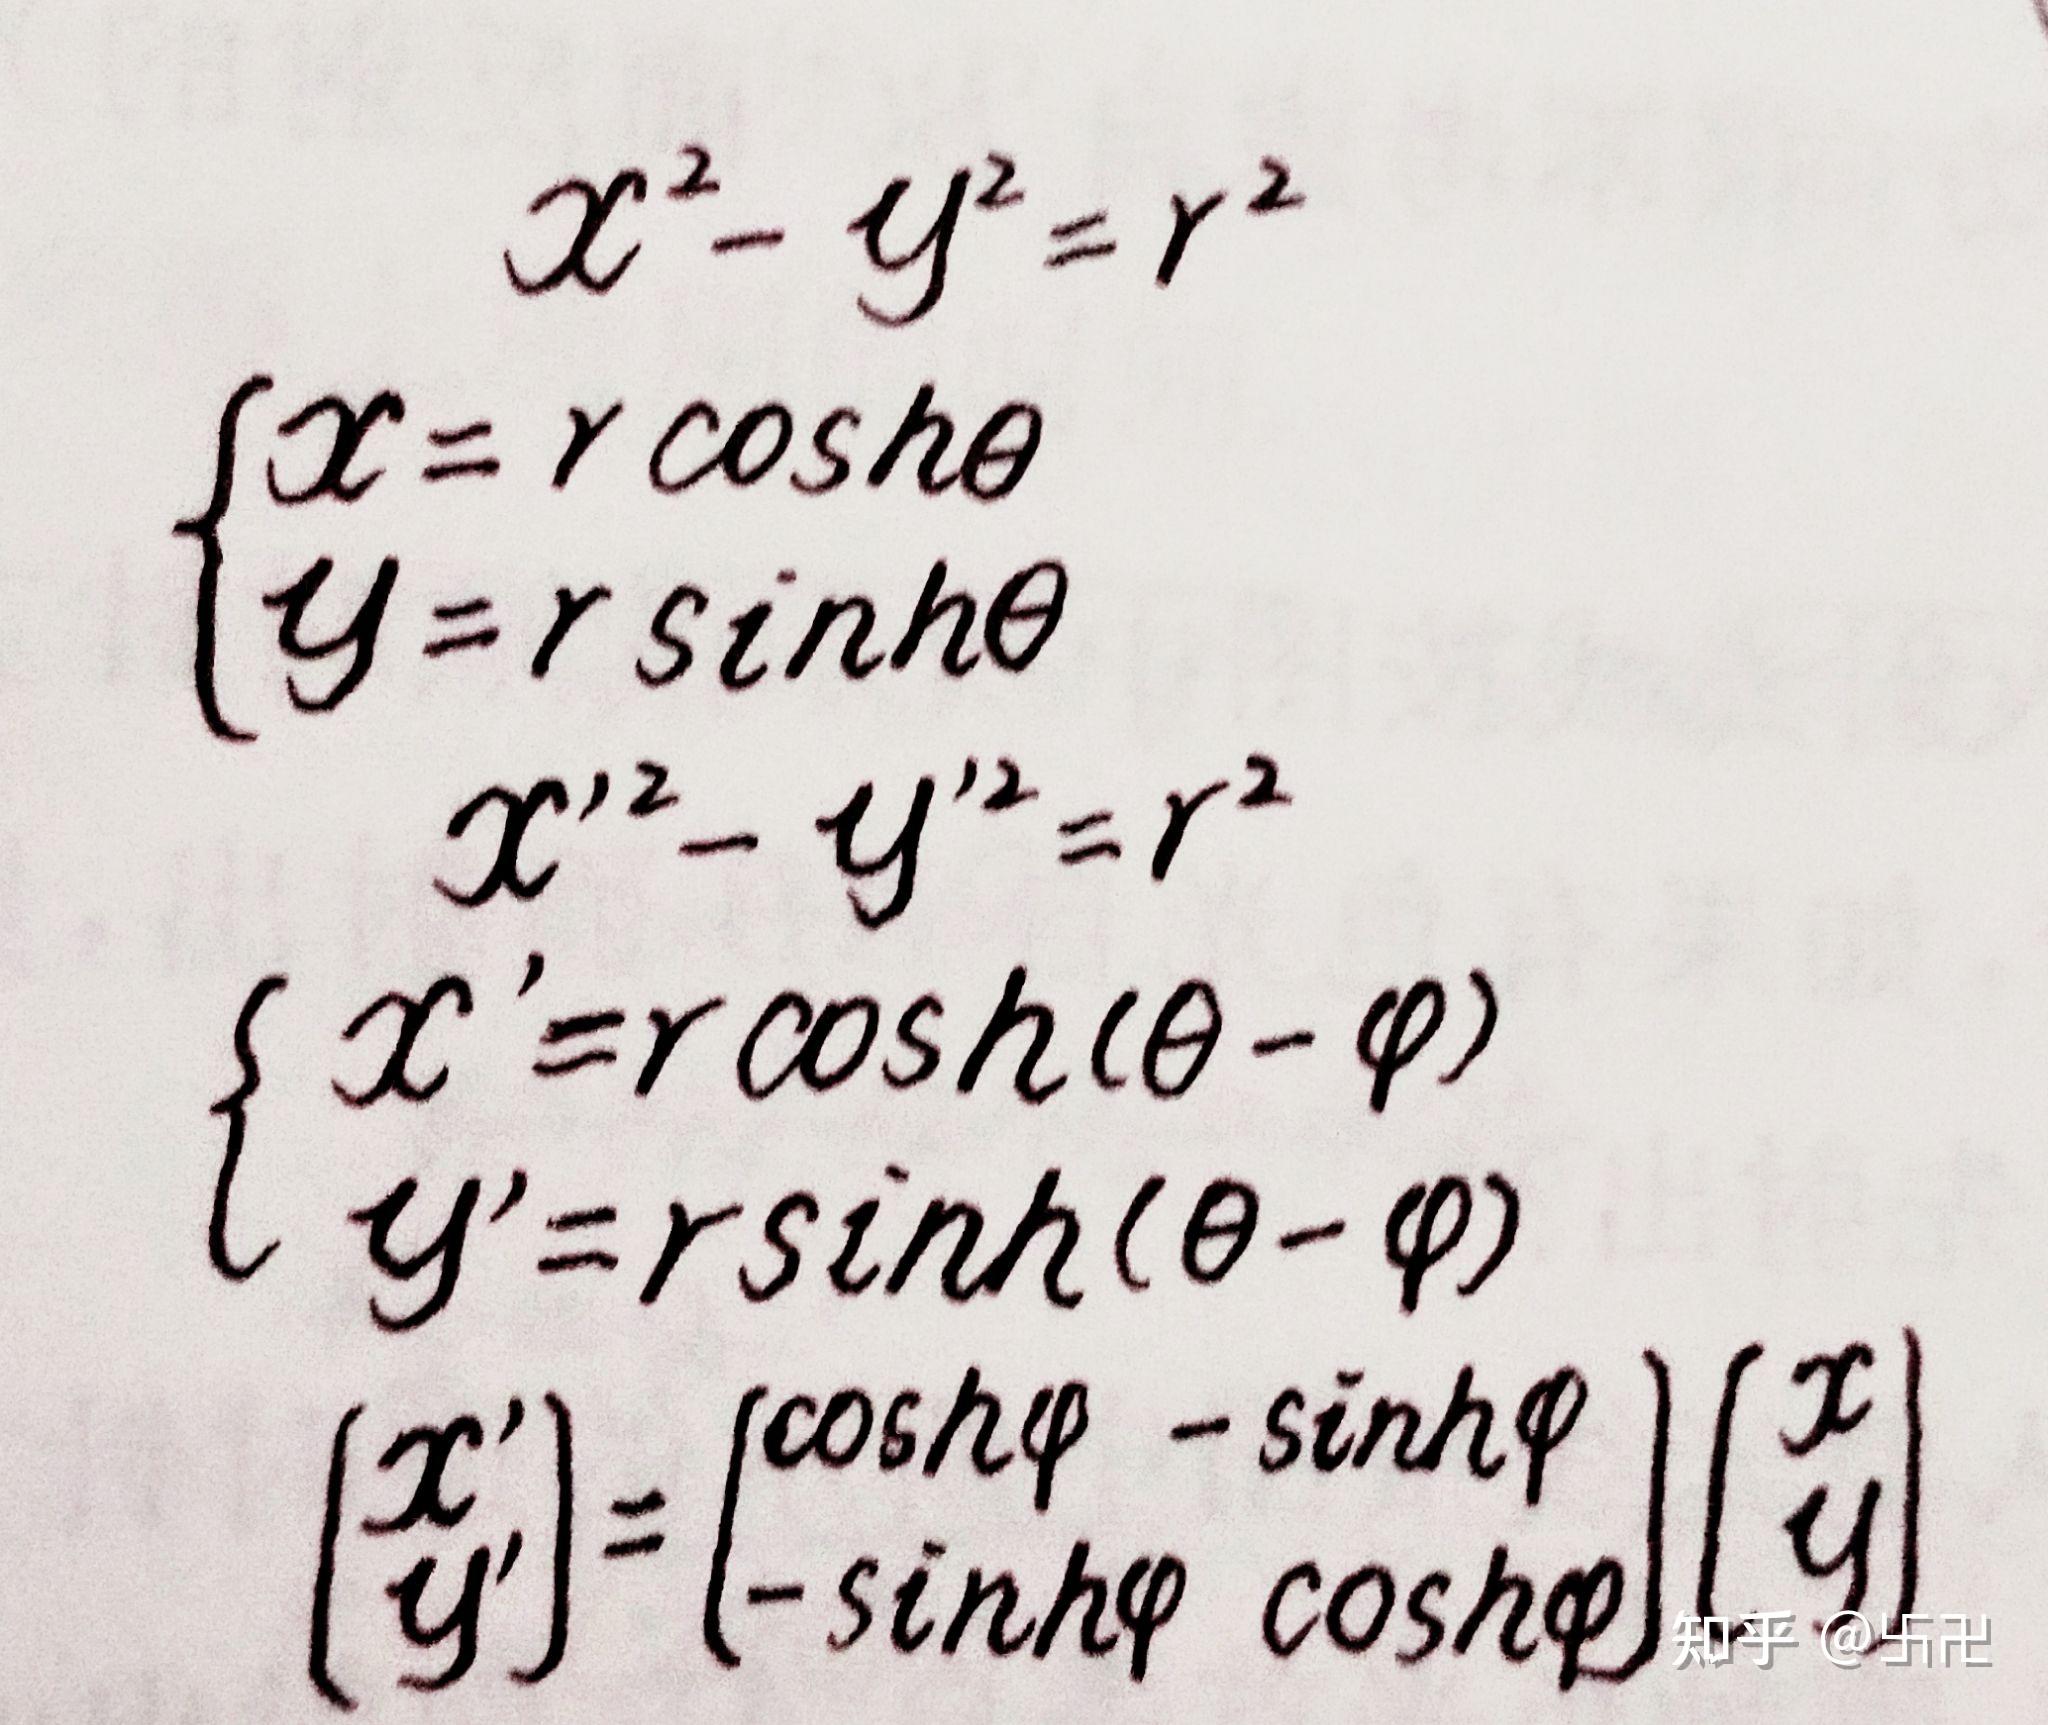 x² - y² = r²
{ x = r coshθ
y = r sinhθ
x'² - y'² = r²
{ x' = r cosh(θ - φ)
y' = r sinh(θ - φ)
(x' y') = (coshφ -sinhφ
-sinhφ coshφ) (x y)
知乎 @卐卍